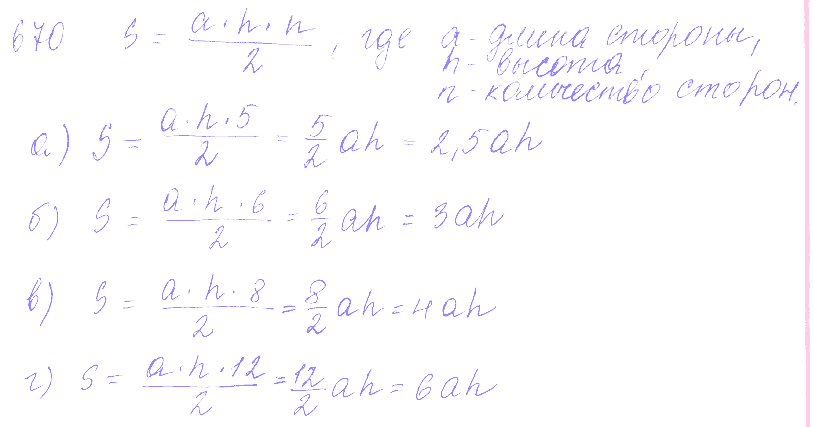 670 S = a·h·n/2, где a - длина стороны,
h - высота,
n - количество сторон.
а) S = a·h·5/2 = 5/2 ah = 2,5 ah
б) S = a·h·6/2 = 6/2 ah = 3ah
в) S = a·h·8/2 = 8/2 ah = 4ah
г) S = a·h·12/2 = 12/2 ah = 6ah